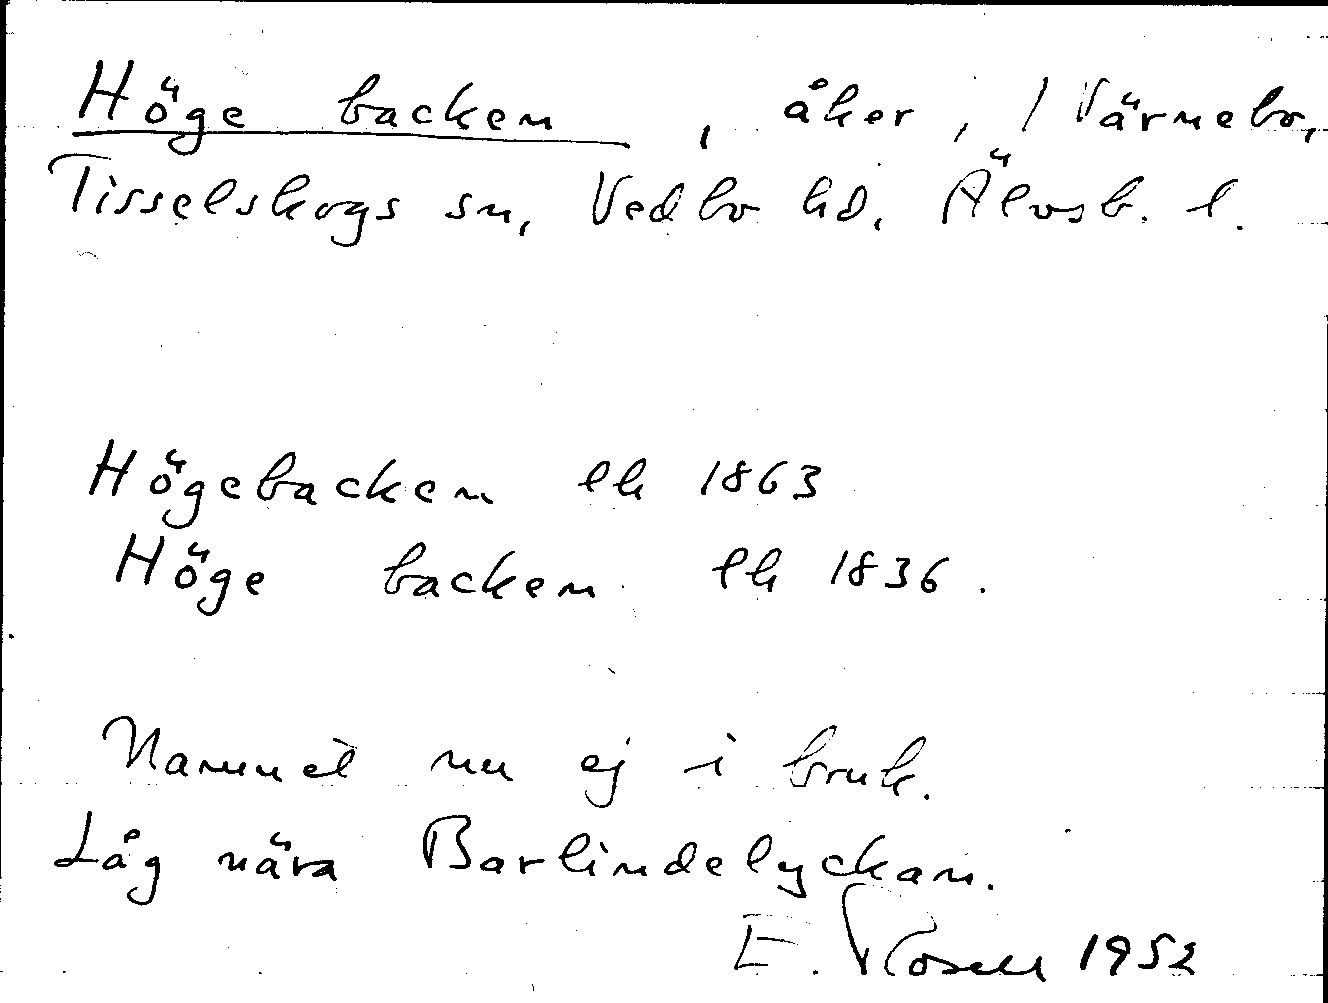 Höge backen, åker, / Värnebo,
Tisselskogs sn, Vedbo hd, Älvsb. l.
Högebacken lh 1863
Höge backen lh 1836.
Namnet nu ej i bruk.
Låg nära Barlindelyckan.
E. Rosell 1952